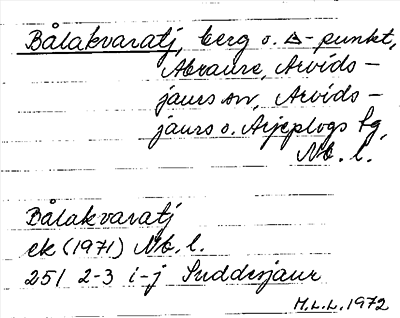 Bålakvaratj, berg o. △-punkt,
Abraure, Arvids-
jaurs sn, Arvids-
jaurs o. Arjeplogs tg,
Nb. l.
Bålakvaratj
ek (1971) Nb. l.
251 2-3 i-j Suddesjaur
M.L.L. 1972